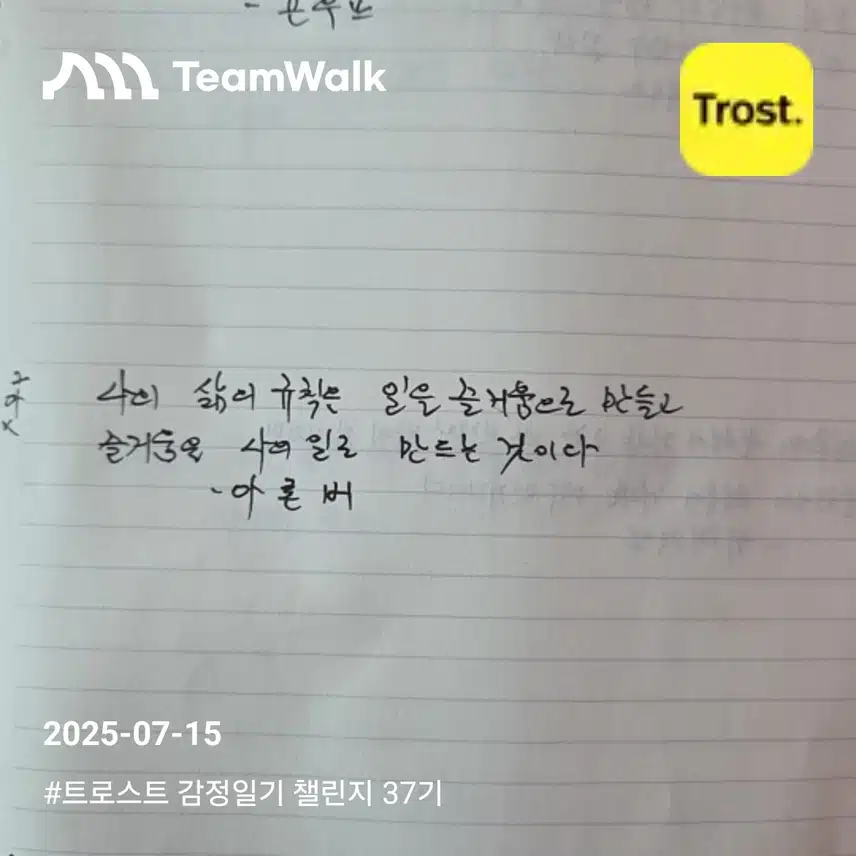 TeamWalk
Trost.
나의 삶의 규칙은 일을 즐거움으로 만들고
즐거움을 나의 일로 만드는 것이다
-아론 버
2025-07-15
#트로스트 감정일기 챌린지 37기